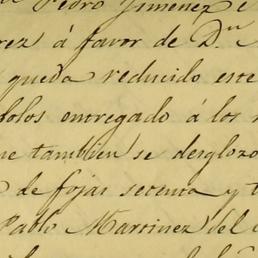 Pedro Jimenez
rez á favor de D.ⁿ
queda reducido este
dolos entregado á los
ne tambien se desglozo
de fojas setenta y
Pablo Martinez del